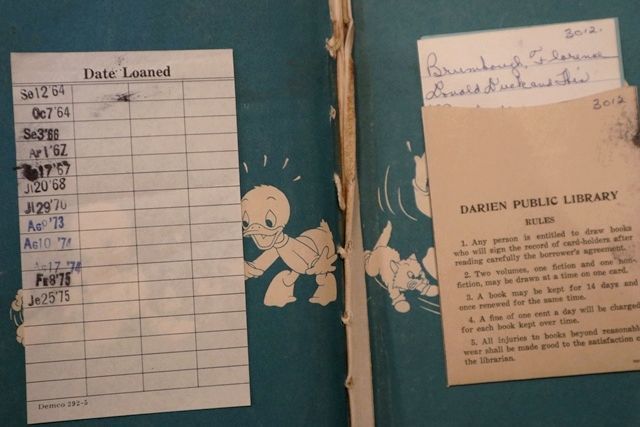 Date Loaned
Se12'64
Oc7'64
Se3'66
Ar1'67
17'67
Jl20'68
Jl29'70
Ag9'73
Ag10 '74
Ag17 '74
Fe8'75
Je25'75
Demco 292-5
3012.
Brumbaugh, Florence
Donald Duck and His
3012
DARIEN PUBLIC LIBRARY
RULES
1. Any person is entitled to draw books
who will sign the record of card-holders after
reading carefully the borrower's agreement.
2. Two volumes, one fiction and one non-
fiction, may be drawn at a time on one card.
3. A book may be kept for 14 days and
once renewed for the same time.
4. A fine of one cent a day will be charged
for each book kept over time.
5. All injuries to books beyond reasonable
wear shall be made good to the satisfaction of
the librarian.